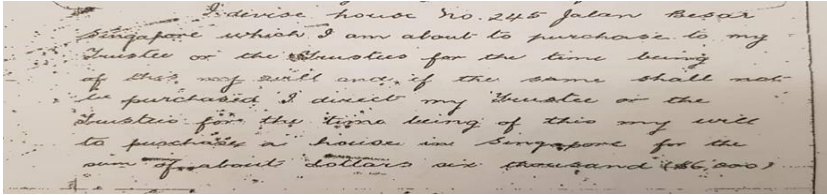 I devise house No. 245 Jalan Besar
Singapore which I am about to purchase to my
Trustee or the Trustees for the time being
of this my will and if the same shall not
be purchased I direct my Trustee or the
Trustees for the time being of this my will
to purchase a house in Singapore for the
sum of about dollars six thousand ($6,000)